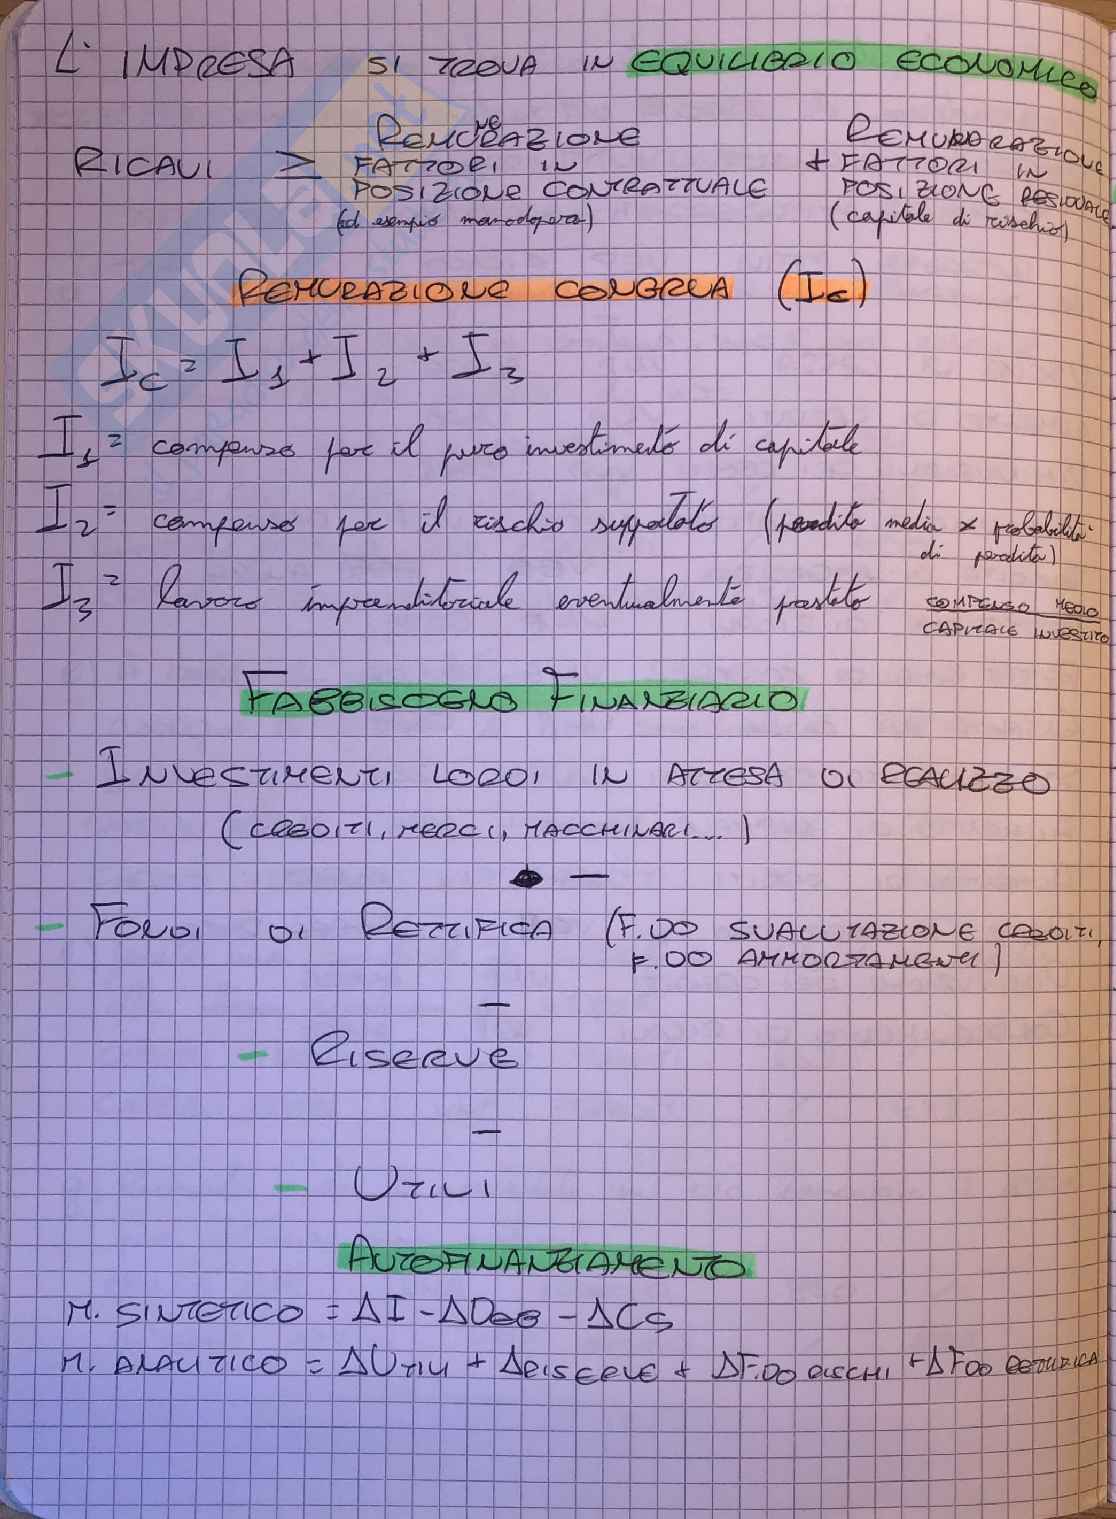 L'IMPRESA SI TROVA IN EQUILIBRIO ECONOMICO
RICAVI ≥ REMUNERAZIONE FATTORI IN POSIZIONE CONTRATTUALE (ad esempio manodopera) + REMURARAZIONE FATTORI IN POSIZIONE RESIDUALE (capitale di rischio)
REMURAZIONE CONGRUA (Ic)
Ic = I1 + I2 + I3
I1 = compenso per il puro investimento di capitale
I2 = compenso per il rischio supportato (perdita media × probabilità di perdita)
I3 = lavoro imprenditoriale eventualmente prestato COMPENSO MEDIO / CAPITALE INVESTITO
FABBISOGNO FINANZIARIO
- INVESTIMENTI LORDI IN ATTESA DI REALIZZO
(CREDITI, MERCI, MACCHINARI...)
-
- FONDI DI RETTIFICA (F.DO SVALUTAZIONE CREDITI,
F.DO AMMORTAMENTI)
-
- RISERVE
-
- UTILI
AUTOFINANZIAMENTO
M. SINTETICO = ΔI - ΔDEB - ΔCS
M. ANALITICO = ΔUTILI + ΔRISERVE + ΔF.DO RISCHI + ΔF.DO RETTIFICA
SKUOLA.net